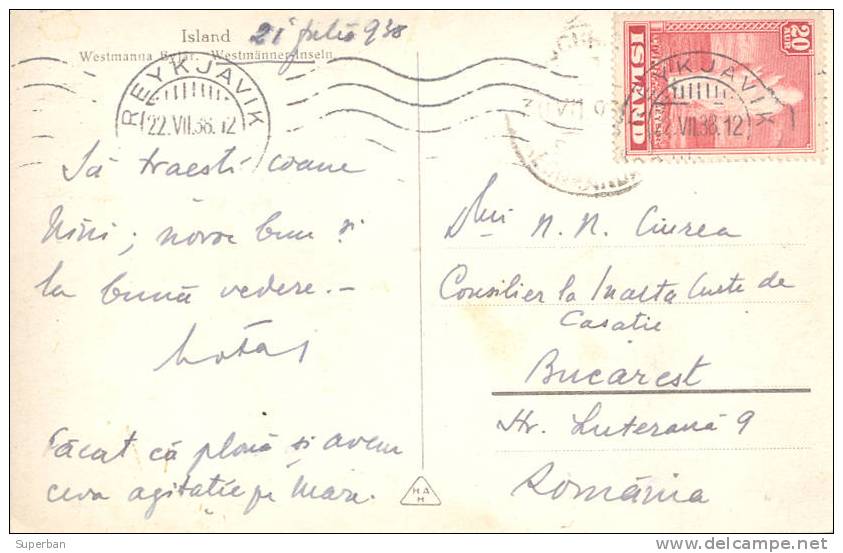 Island
21 juliu 938
Westmanna Eyjar. Westmänner-Inseln
REYKJAVIK
22.VII.38.12
20
AUR
ISLAND
REYKJAVIK
22.VII.38.12
Să traesti coane
Nini; noroc bun și
la bună vedere.-
Făcat că plouă si avem
ceva agitatie pe Mare.
Dlui N. N. Ciurea
Consilier la Inalta Curte de
Casatie
Bucarest
Str. Luterană 9
România
HAH
Superban
www.delcampe.net